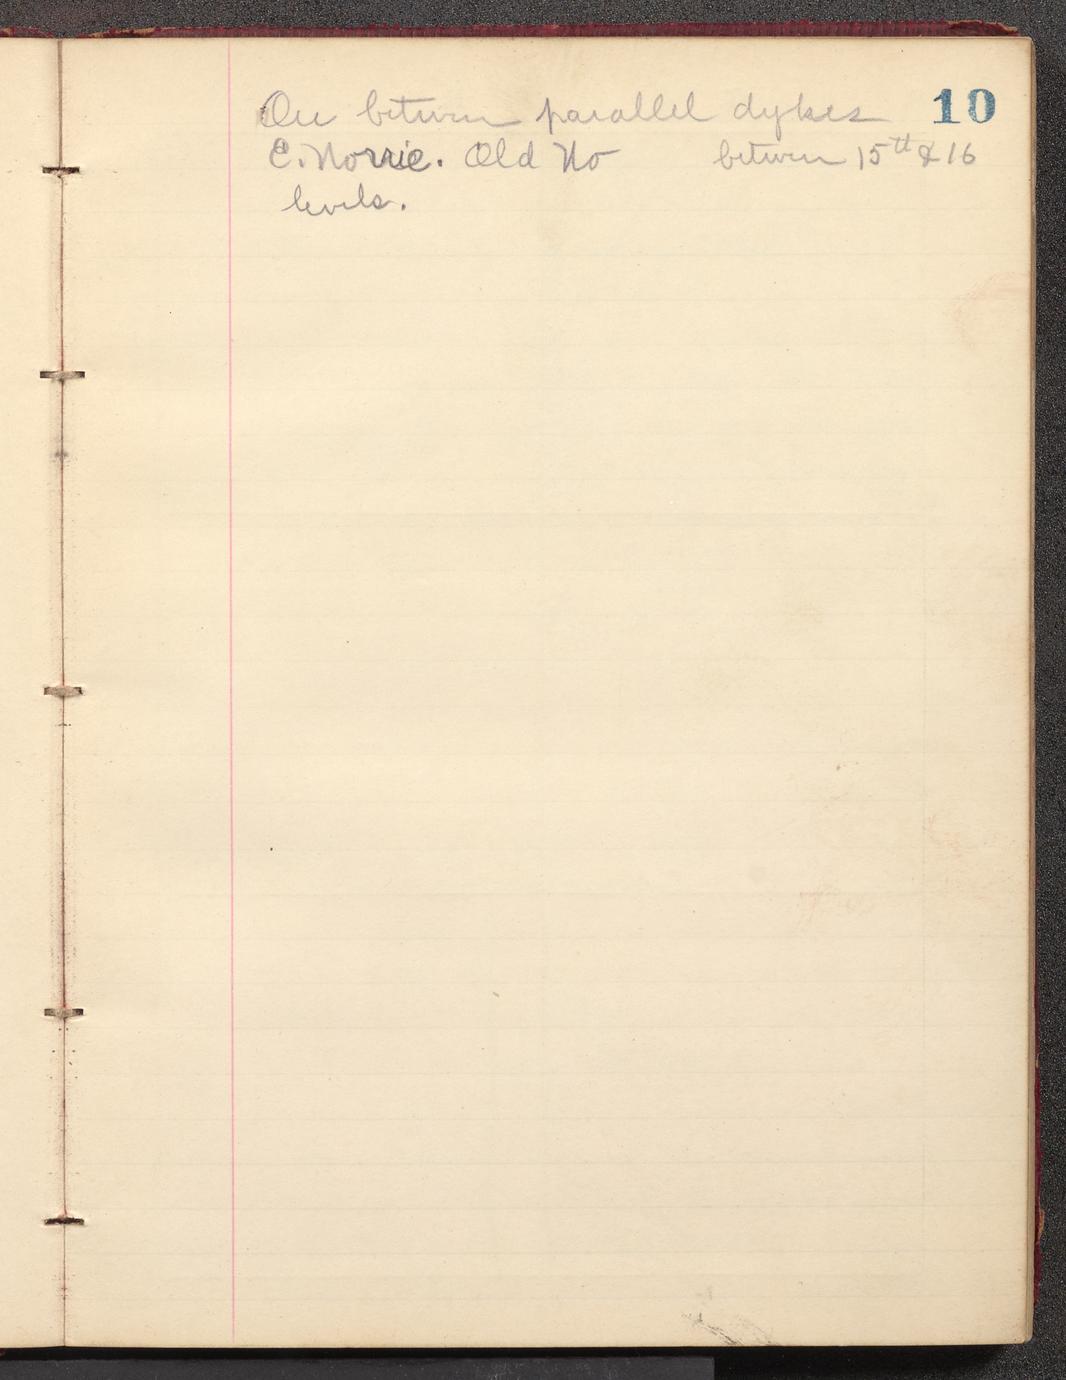 10
Ore between parallel dykes
E. Norrie. Old No between 15th & 16
levels.